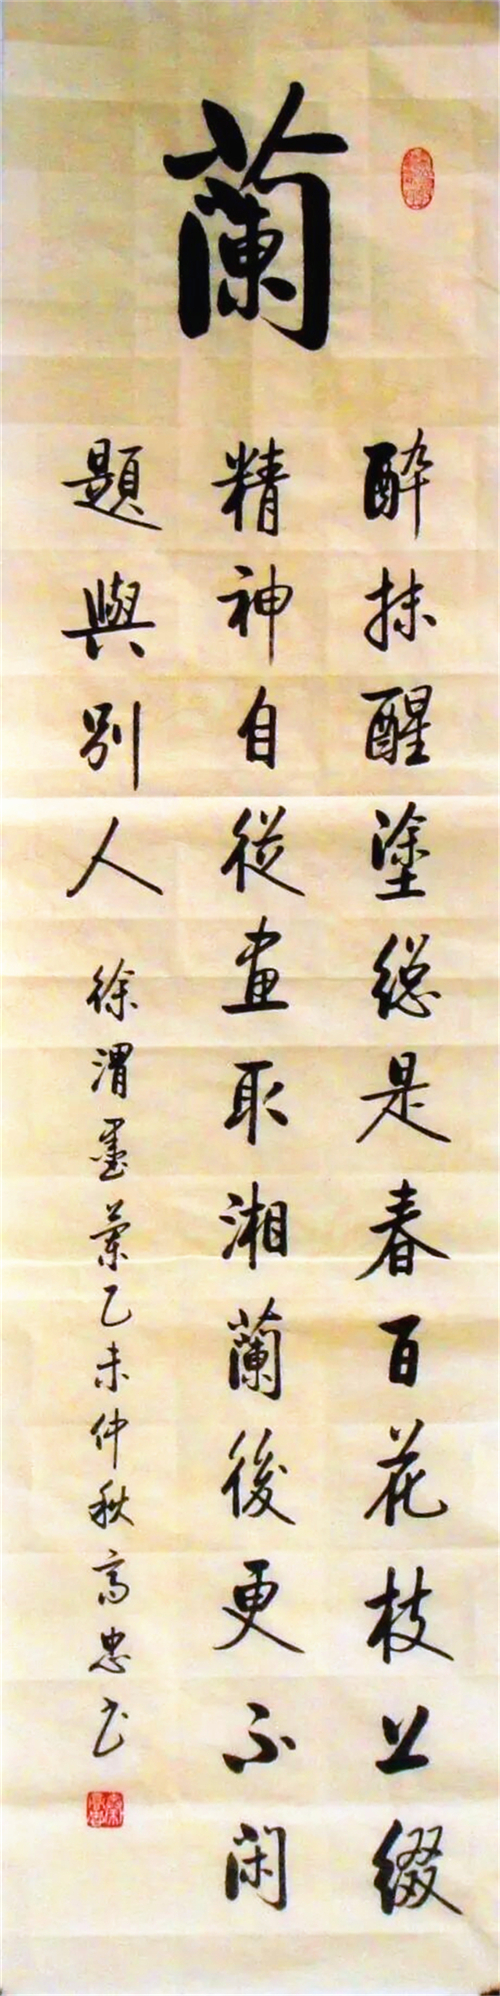 蘭
醉抹醒塗總是春百花枝上綴
精神自從畫取湘蘭後更不閑
題與別人
徐渭墨蘭乙未仲秋高忠书